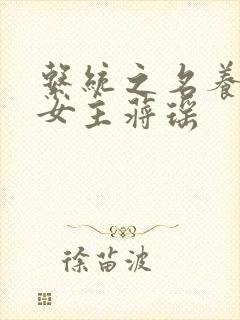 繫統之名養
女主蔣瑶
徐苗波